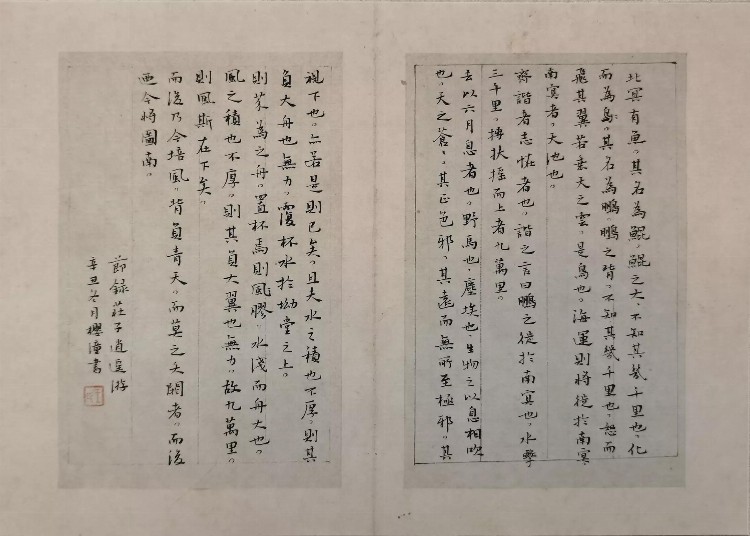 北冥有魚。其名為鯤。鯤之大、不知其幾千里也。化
而為鳥。其名為鵬。鵬之背。不知其幾千里也。怒而
飛其翼若垂天之雲。是鳥也。海運則將徙於南冥
南冥者。天池也。
齊諧者志怪者也。諧之言曰鵬之徙於南冥也。水擊
三千里。摶扶搖而上者九萬里。
去以六月息者也。野馬也。塵埃也。生物之以息相吹
也。天之蒼〻。其正色邪。其遠而無所至極邪。其
視下也。亦若是則已矣。且夫水之積也不厚。則其
負大舟也無力。覆杯水於坳堂之上。
則芥為之舟。置杯焉則風膠。水淺而舟大也。
風之積也不厚。則其負大翼也無力。故九萬里。
則風斯在下矣。
而後乃今培風。背負青天。而莫之夭閼者。而後
迺今將圖南。
節錄莊子逍遙游
辛丑冬月櫻潼書